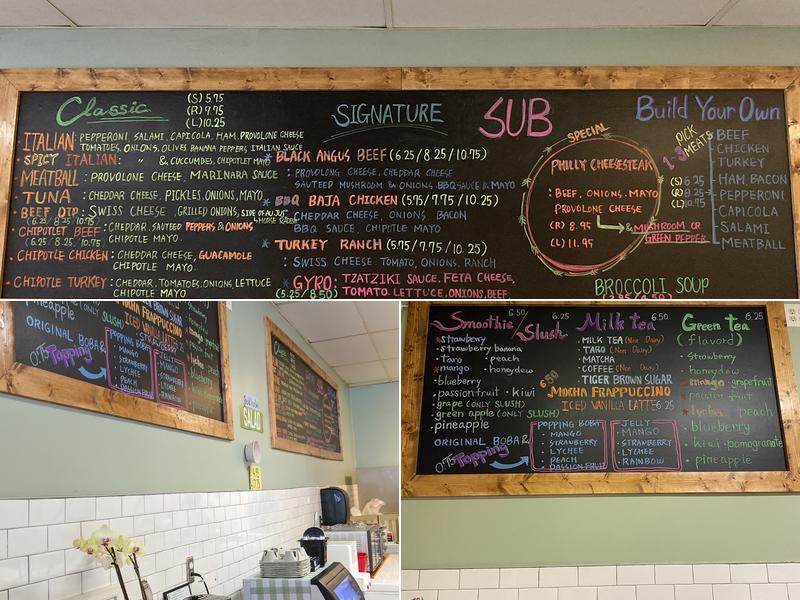 Classic
(S) 5.75
(R) 7.75
(L) 10.25
ITALIAN: PEPPERONI, SALAMI, CAPICOLA, HAM, PROVOLONE CHEESE
TOMATOES, ONIONS, OLIVES BANANA PEPPERS, ITALIAN SAUCE
SPICY ITALIAN: " & CUCUMBERS, CHIPOTLET MAYO
MEATBALL: PROVOLONE CHEESE, MARINARA SAUCE
TUNA: CHEDDAR CHEESE, PICKLES, ONIONS, MAYO
BEEF DIP: SWISS CHEESE, GRILLED ONIONS, SIDE OF AU JUS
(6.25/8.25/10.75) & HORSE RADISH
CHIPOTLET BEEF: CHEDDAR, SAUTEED PEPPERS & ONIONS
(6.25/8.25/10.75) CHIPOTLE MAYO.
CHIPOTLE CHICKEN: CHEDDAR CHEESE, GUACAMOLE
CHIPOTLE MAYO.
CHIPOTLE TURKEY: CHEDDAR, TOMATOES, ONIONS, LETTUCE
CHIPOTLE MAYO
SIGNATURE SUB
BLACK ANGUS BEEF (6.25/8.25/10.75)
: PROVOLONG CHEESE, CHEDDAR CHEESE
SAUTEED MUSHROOM & ONIONS, BBQ SAUCE & MAYO
BBQ BAJA CHICKEN (5.75/7.75/10.25)
CHEDDAR CHEESE, ONIONS BACON
BBQ SAUCE, CHIPOTLE MAYO
TURKEY RANCH (5.75/7.75/10.25)
: SWISS CHEESE TOMATO, ONIONS, RANCH
GYRO: TZATZIKI SAUCE, FETA CHEESE,
(5.25/8.50) TOMATO, LETTUCE, ONIONS, BEEF
SPECIAL
PHILLY CHEESESTEAK
: BEEF, ONIONS, MAYO
PROVOLONE CHEESE
(R) 8.95
(L) 11.95
& MUSHROOM OR
GREEN PEPPER
BROCCOLI SOUP
Build Your Own
PICK
1-3 MEATS
(S) 6.25
(R) 8.25
(L) 10.75
BEEF
CHICKEN
TURKEY
HAM, BACON
PEPPERONI
CAPICOLA
SALAMI
MEATBALL
pineapple
(ONLY SLUSH)
MOCHA FRAPPUCCINO
ICED VANILLA LATTE
ORIGINAL BOBA &
0.75 Popping
POPPING BOBA
MANGO
STRAWBERRY
LYCHEE
PEACH
PASSION FRUIT
JELLY
MANGO
STRAWBERRY
LYCHEE
RAINBOW
SALAD
Smoothie 6.50 / Slush 6.25
strawberry
strawberry banana
Taro
peach
mango
honeydew
blueberry
passionfruit
kiwi
grape (ONLY SLUSH)
green apple (ONLY SLUSH)
pineapple
Milk tea 6.50
MILK TEA (Non Dairy)
TARO (Non Dairy)
MATCHA
COFFEE (Non Dairy)
TIGER BROWN SUGAR
6.50 MOCHA FRAPPUCCINO
ICED VANILLA LATTE 6.25
ORIGINAL BOBA &
0.75 Popping
POPPING BOBA
MANGO
STRAWBERRY
LYCHEE
PEACH
PASSION FRUIT
JELLY
MANGO
STRAWBERRY
LYCHEE
RAINBOW
Green tea 6.25
(flavord)
strawberry
honeydew
mango
grapefruit
passion fruit
lychee
peach
blueberry
kiwi
pomogranate
pineapple